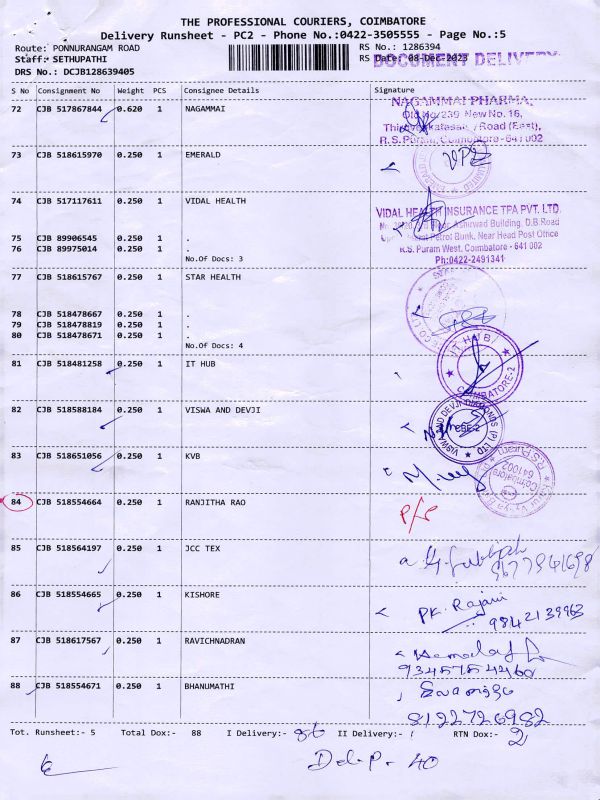 THE PROFESSIONAL COURIERS, COIMBATORE
Delivery Runsheet - PC2 - Phone No.:0422-3505555 - Page No.:5
Route: PONNURANGAM ROAD
RS No.: 1286394
Staff: SETHUPATHI
RS Date: 08-Dec-2023
DOCUMENT DELIVERY
DRS No.: DCJB128639405
S No Consignment No Weight PCS Consignee Details Signature
72 CJB 517867844 0.620 1 NAGAMMAI
NAGAMMAI PHARMA,
Old No/239 New No. 16,
Road (East),
R.S. Puram, Coimbatore - 641 002
73 CJB 518615970 0.250 1 EMERALD
74 CJB 517117611 0.250 1 VIDAL HEALTH
VIDAL HEALTH INSURANCE TPA PVT. LTD.
Ashirwad Building, D.B.Road
Petrol Bunk, Near Head Post Office
R.S. Puram West, Coimbatore - 641 002
Ph:0422-2491341
75 CJB 89906545 1 .
76 CJB 89975014 1 .
No.Of Docs: 3
77 CJB 518615767 0.250 1 STAR HEALTH
78 CJB 518478667 1 .
79 CJB 518478819 1 .
80 CJB 518478671 1 .
No.Of Docs: 4
81 CJB 518481258 0.250 1 IT HUB
IT HUB
COIMBATORE-2
82 CJB 518588184 0.250 1 VISWA AND DEVJI
VISWA AND DEVJI DIAMONDS (P) LTD
CBE-2
83 CJB 518651056 0.250 1 KVB
R.S.Puram
Coimbatore
641002
84 CJB 518554664 0.250 1 RANJITHA RAO
85 CJB 518564197 0.250 1 JCC TEX
86 CJB 518554665 0.250 1 KISHORE
PK. Rajani
9842139963
87 CJB 518617567 0.250 1 RAVICHNADRAN
88 CJB 518554671 0.250 1 BHANUMATHI
8122726982
Tot. Runsheet:- 5 Total Dox:- 88 I Delivery:- 86 II Delivery:- RTN Dox:- 2
Del.P - 40